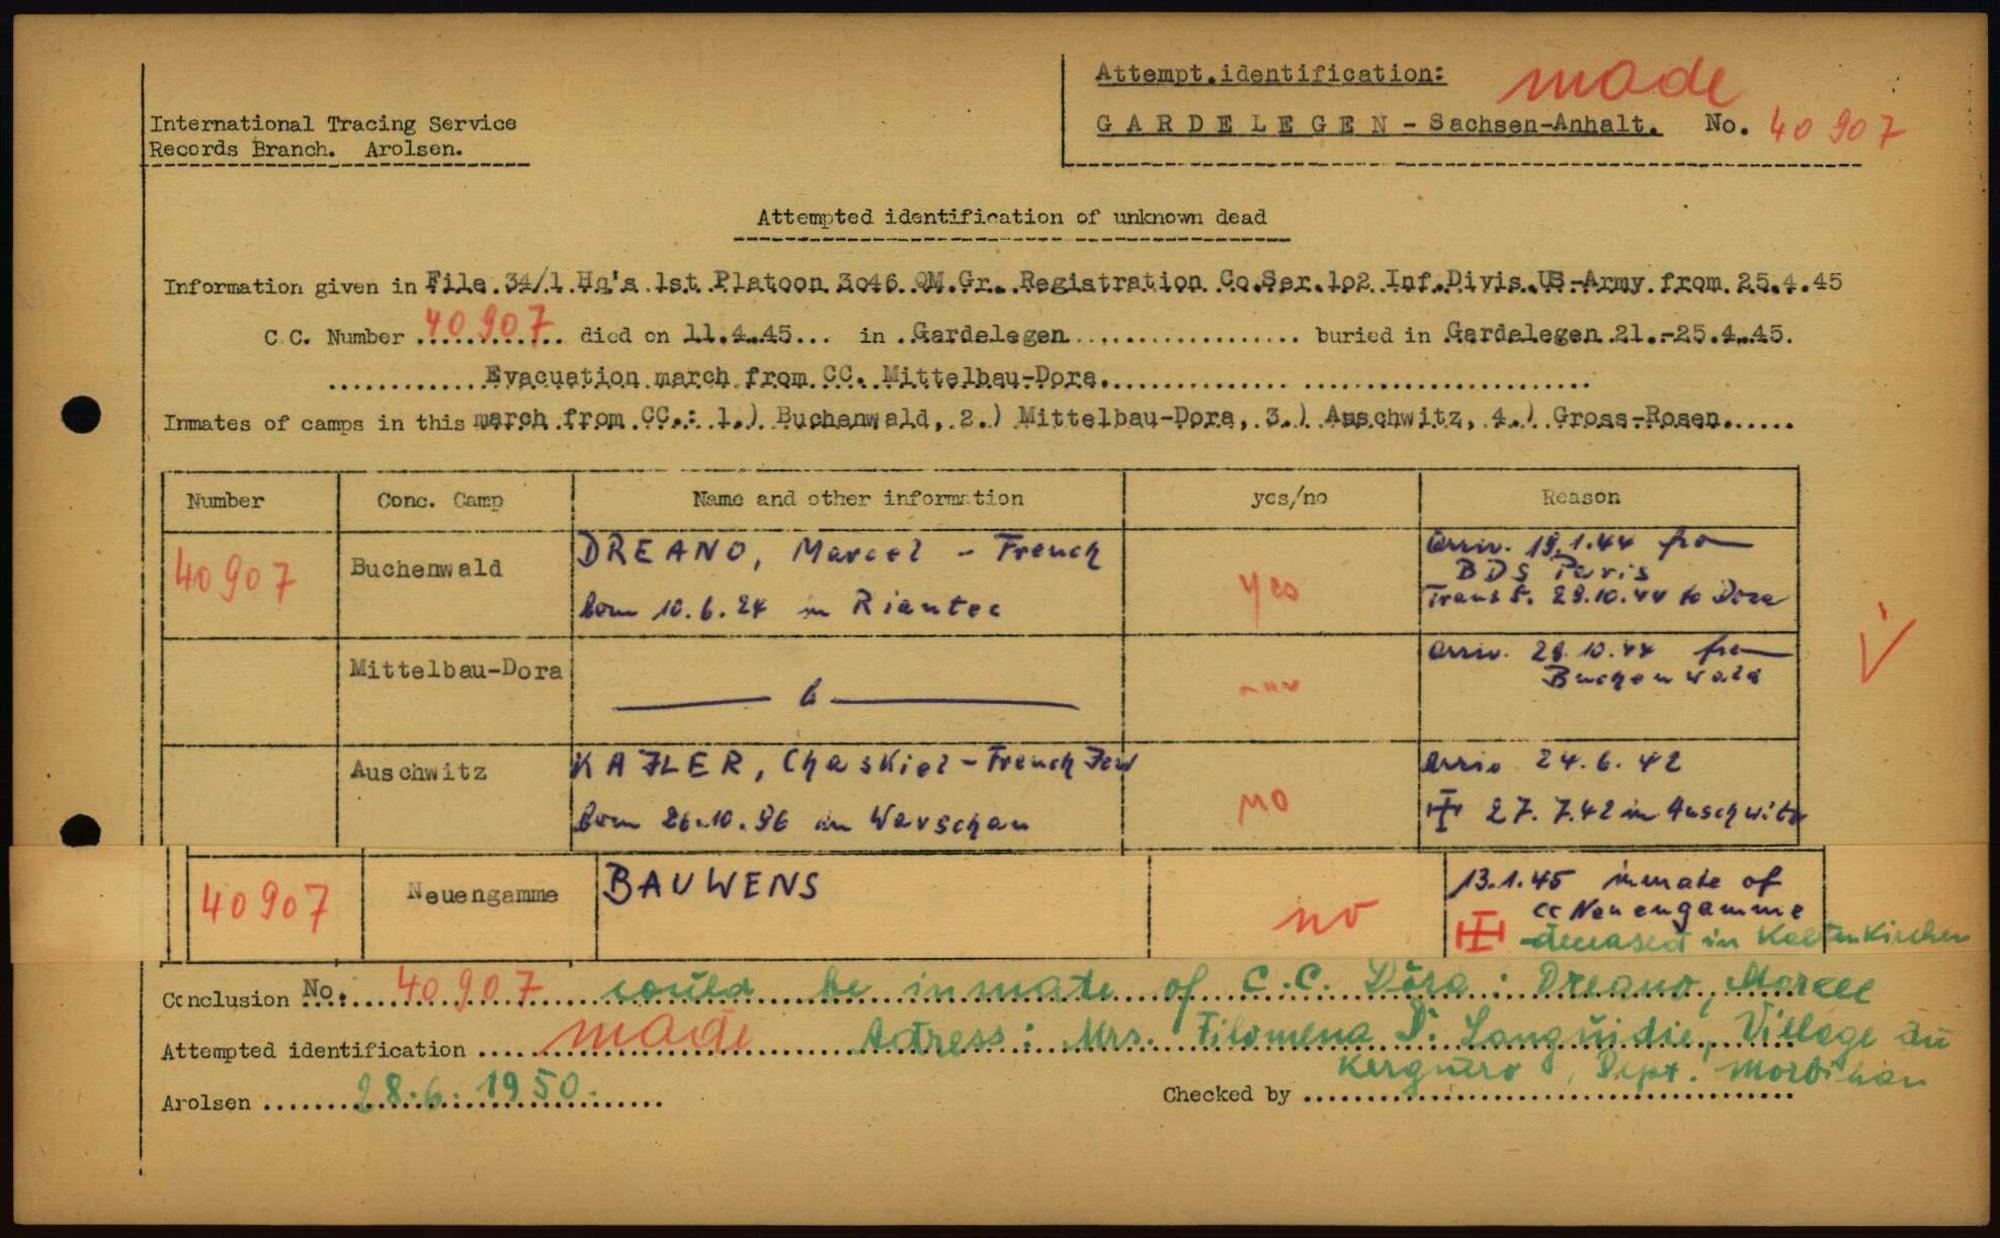 Attempt.identification: made
GARDELEGEN - Sachsen-Anhalt. No. 40907
International Tracing Service
Records Branch. Arolsen.
Attempted identification of unknown dead
Information given in File.34/1.Hq's.1st.Platoon.3o46.QM.Gr..Registration.Co.Ser.1o2.Inf.Divis.US-Army.from.25.4.45
C.C. Number 40907 died on 11.4..45... in .Gardelegen buried in Gardelegen.21.-25.4..45.
Evacuation march from CC. Mittelbau-Dora.
Inmates of camps in this march from CC.: 1.) Buchenwald, 2.) Mittelbau-Dora, 3.) Auschwitz, 4.) Gross-Rosen.
Number Conc. Camp Name and other information yes/no Reason
40907 Buchenwald DREANO, Marcel - French yes Arriv. 19.1.44 from
BDS Paris
born 10.6.24 in Riantec Transf. 28.10.44 to Dora
Mittelbau-Dora Arriv. 28.10.44 from
Buchenwald
Auschwitz KAJLER, Chaskiel - French Jew no Arriv 24.6.42
born 26.10.96 in Warschau 27.7.42 in Auschwitz
40907 Neuengamme BAUWENS no 13.1.45 inmate of
cc Neuengamme
deceased in Kaltenkirchen
Conclusion No. 40907 could be inmate of C.C. Dora: Dreano, Marcel
Attempted identification made Adress: Mrs. Filomena D. Languidic, Village du
Kerguero, Dept. Morbihan
Arolsen 28.6.1950. Checked by